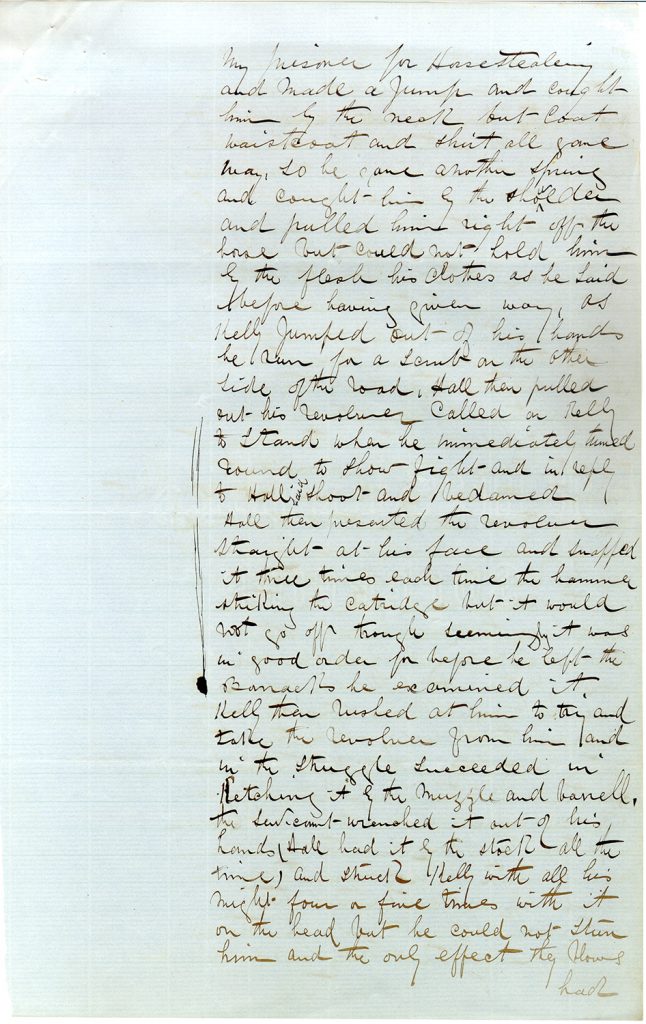 My prisoner for Horsestealing
and made a Jump and cought
him by the neck but Coat
waistcoat and shirt all gave
way, so he gave another spring
and cought him by the sholder
and pulled him right off the
horse but could not hold him
by the flesh his clothes as he said
before having given way, as
Kelly Jumped out of his hands
he run for a scrub on the other
side of the road, Hall then pulled
out his revolver Called on Kelly
to Stand when he immediatel turned
round to show fight and in reply
to Hall said shoot and bedamed
Hall then presented the revolver
straight at his face and snapped
it three times each time the hammer
striking the catridge but it would
not go off trough seemingly it was
in good order for before he left the
Barracks he examined it,
Kelly then rushed at him to try and
take the revolver from him and
in the struggle succeeded in
ketching it by the muzzle and barrell,
the wrenched it out of his
hands (Hall had it by the stock all the
time) and struck Kelly with all his
might four or five times with it
on the head but he could not stun
him and the only effect they blows
had